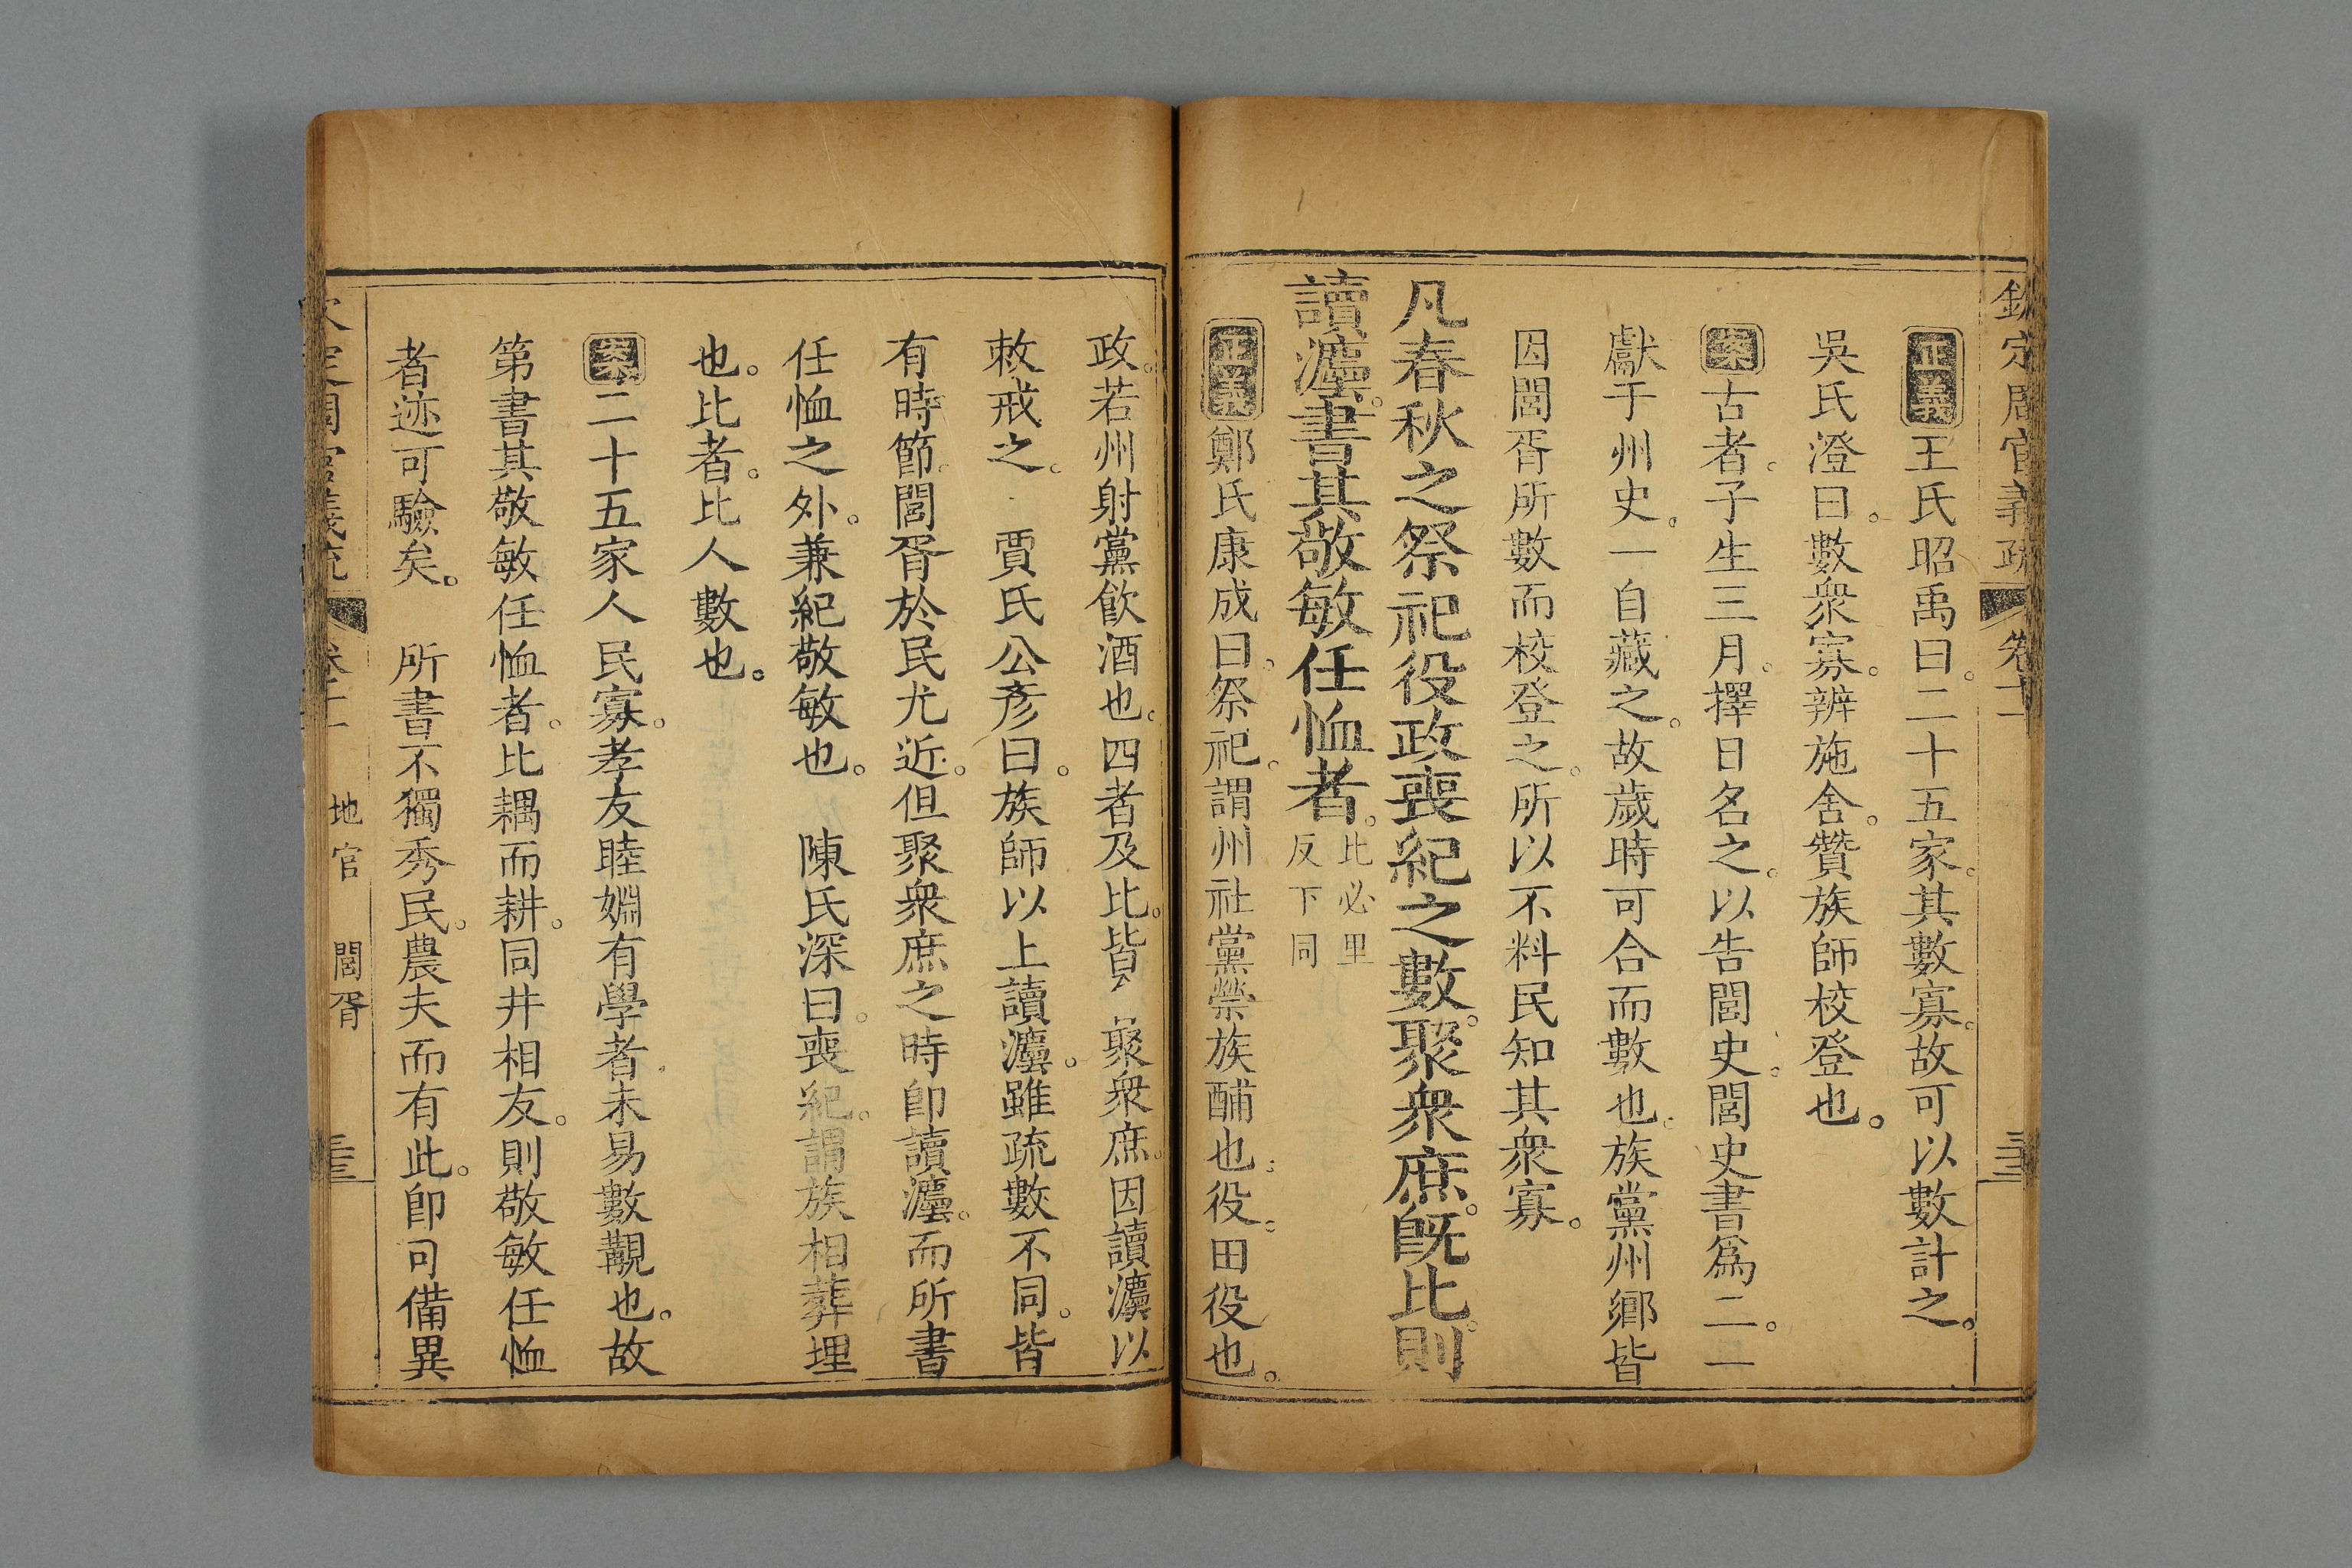 欽定周官義疏 卷十一
正義王氏昭禹曰。二十五家。其數寡。故可以數計之。
吳氏澄曰。數衆寡。辨施舍。贊族師校登也。
案古者。子生三月。擇日名之。以告閭史。閭史書爲二。一
獻于州史。一自藏之。故歲時可合而數也。族黨州鄉皆
因閭胥所數而校登之。所以不料民知其衆寡。
凡春秋之祭祀役政喪紀之數。聚衆庶。旣比。則
讀灋。書其敬敏任恤者。比必里
反下同
正義鄭氏康成曰。祭祀。謂州社黨禜族酺也。役。田役也。
政。若州射黨飮酒也。四者及比。皆 聚衆庶。因讀灋以
敕戒之。 賈氏公彥曰。族師以上讀灋。雖疏數不同。皆
有時節。閭胥於民尤近。但聚衆庶之時卽讀灋。而所書
任恤之外。兼紀敬敏也。 陳氏深曰。喪紀。謂族相葬埋
也。比者。比人數也。
案二十五家人民寡。孝友睦婣有學者。未易數觀也。故
第書其敬敏任恤者。比耦而耕。同井相友。則敬敏任恤
者迹可驗矣。 所書不獨秀民。農夫而有此。卽可備異
欽定周官義疏 卷十一 地官 閭胥